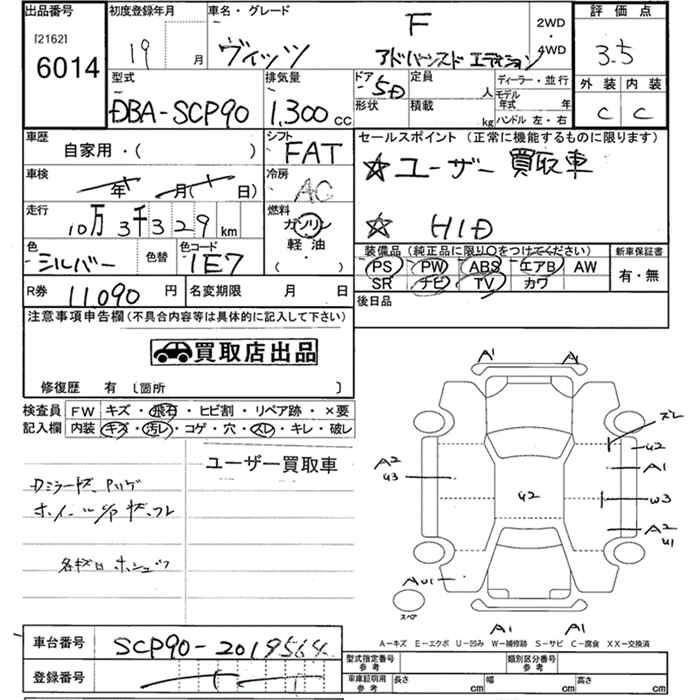 出品番号 初度登録年月 車名・グレード 2WD・4WD 評価点
[2162]
6014
19 月 ヴィッツ F
アドバンスド エディション
3.5
型式 排気量 ドア 定員 人 ディーラー・並行 外装 内装
DBA-SCP90 1,300 CC 5D 形状 積載 kg モデル年式 年 ハンドル 左・右 C C
車歴 自家用・( )
シフト FAT
セールスポイント (正常に機能するものに限ります)
☆ユーザー買取車
車検 年 月( 日)
冷房 AC
走行 10万3千329km
燃料 ガソリン 軽油 ( )
☆ HID
色 シルバー 色替 色コード 1E7
装備品 (純正品に限り○をつけてください) 新車保証書
PS PW ABS エアB AW 有・無
SR ナビ TV カワ
R券 11,090 円 名変期限 月 日
後日品
注意事項申告欄(不具合内容等は具体的に記入して下さい)
買取店出品
修復歴 有 [箇所 ]
検査員 FW キズ・飛石・ヒビ割・リペア跡・×要
記入欄 内装 キズ・汚レ・コゲ・穴・スレ・キレ・破レ
ユーザー買取車
A1 A1
ズレ
U2
A1
A2
U3
U2
W3
A2
U1
AU1
スペア
A1 A1
A-キズ E-エクボ U-凹み W-補修跡 S-サビ C-腐食 XX-交換済
車台番号 SCP90-2019564
登録番号
型式指定番号 参考 類別区分番号 参考
車庫証明用 参考 長さ cm 幅 cm 高さ cm